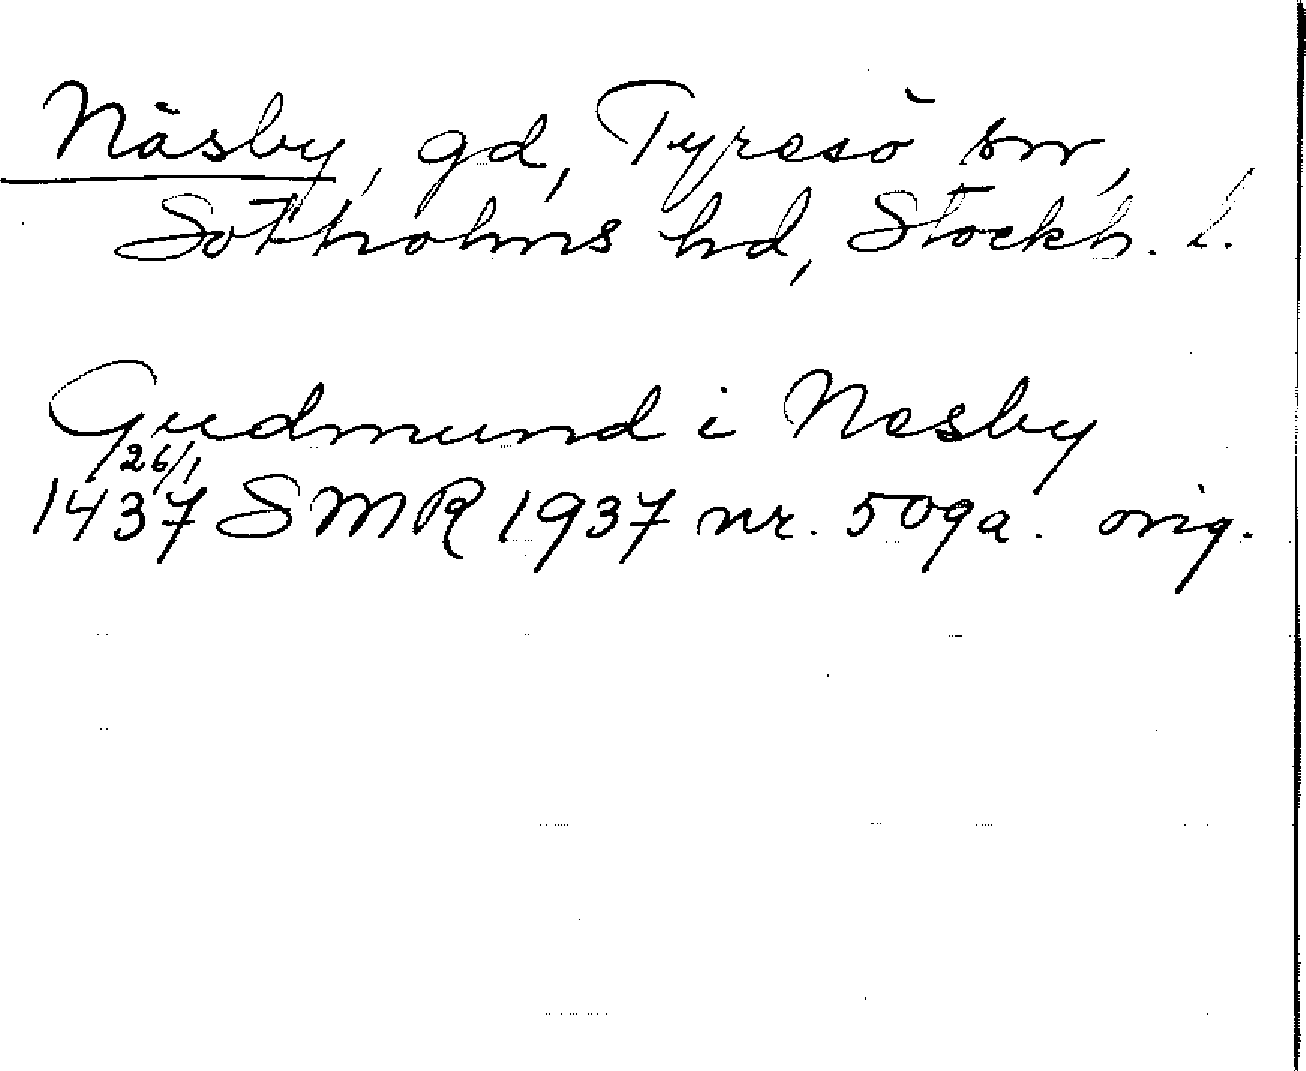 Näsby, gd, Tyresö sn,
Sotholms hd, Stockh. l.
Gudmund i Nesby
26/1
1437 SMR 1937 nr. 509a. orig.